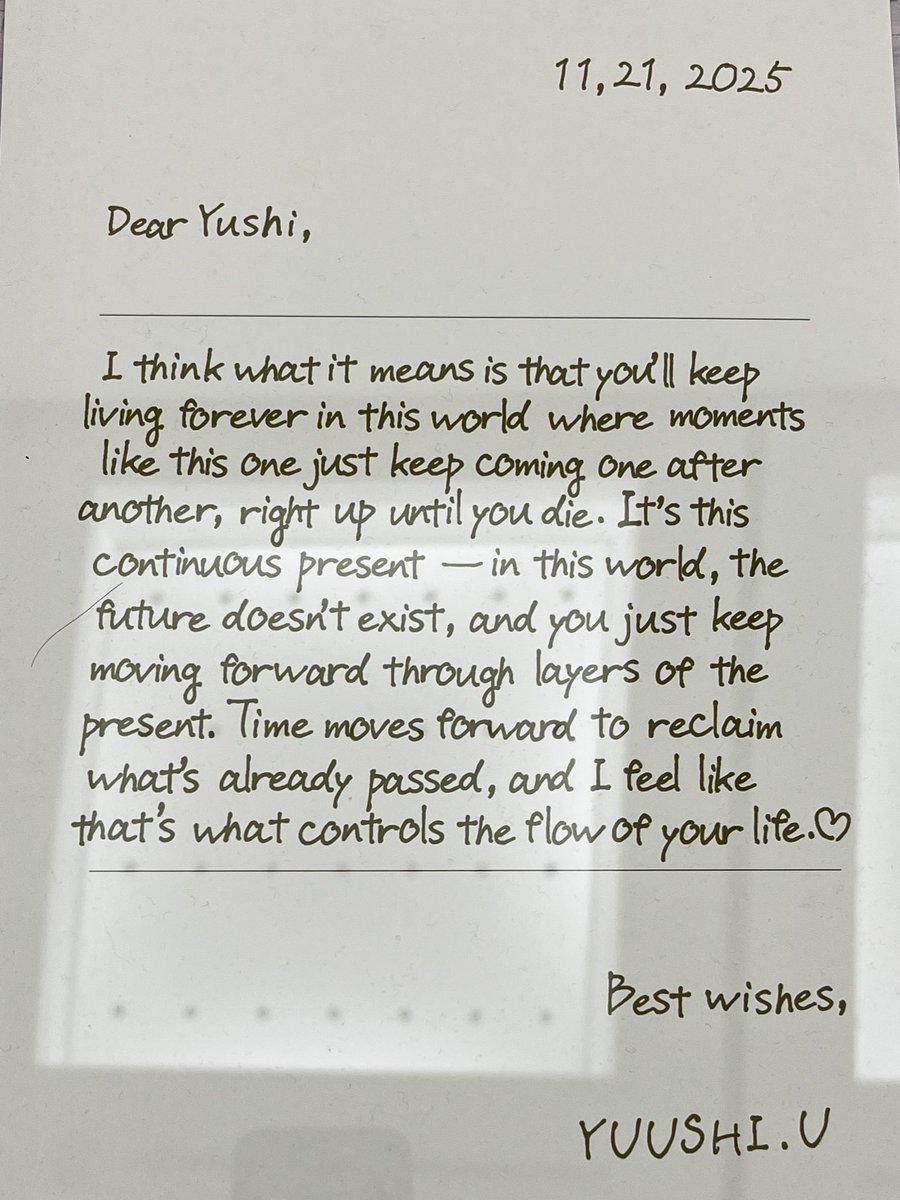 11,21, 2025
Dear Yushi,
I think what it means is that you'll keep
living forever in this world where moments
like this one just keep coming one after
another, right up until you die. It's this
continuous present — in this world, the
future doesn't exist, and you just keep
moving forward through layers of the
present. Time moves forward to reclaim
what's already passed, and I feel like
that's what controls the flow of your life.♡
Best wishes,
YUUSHI.U